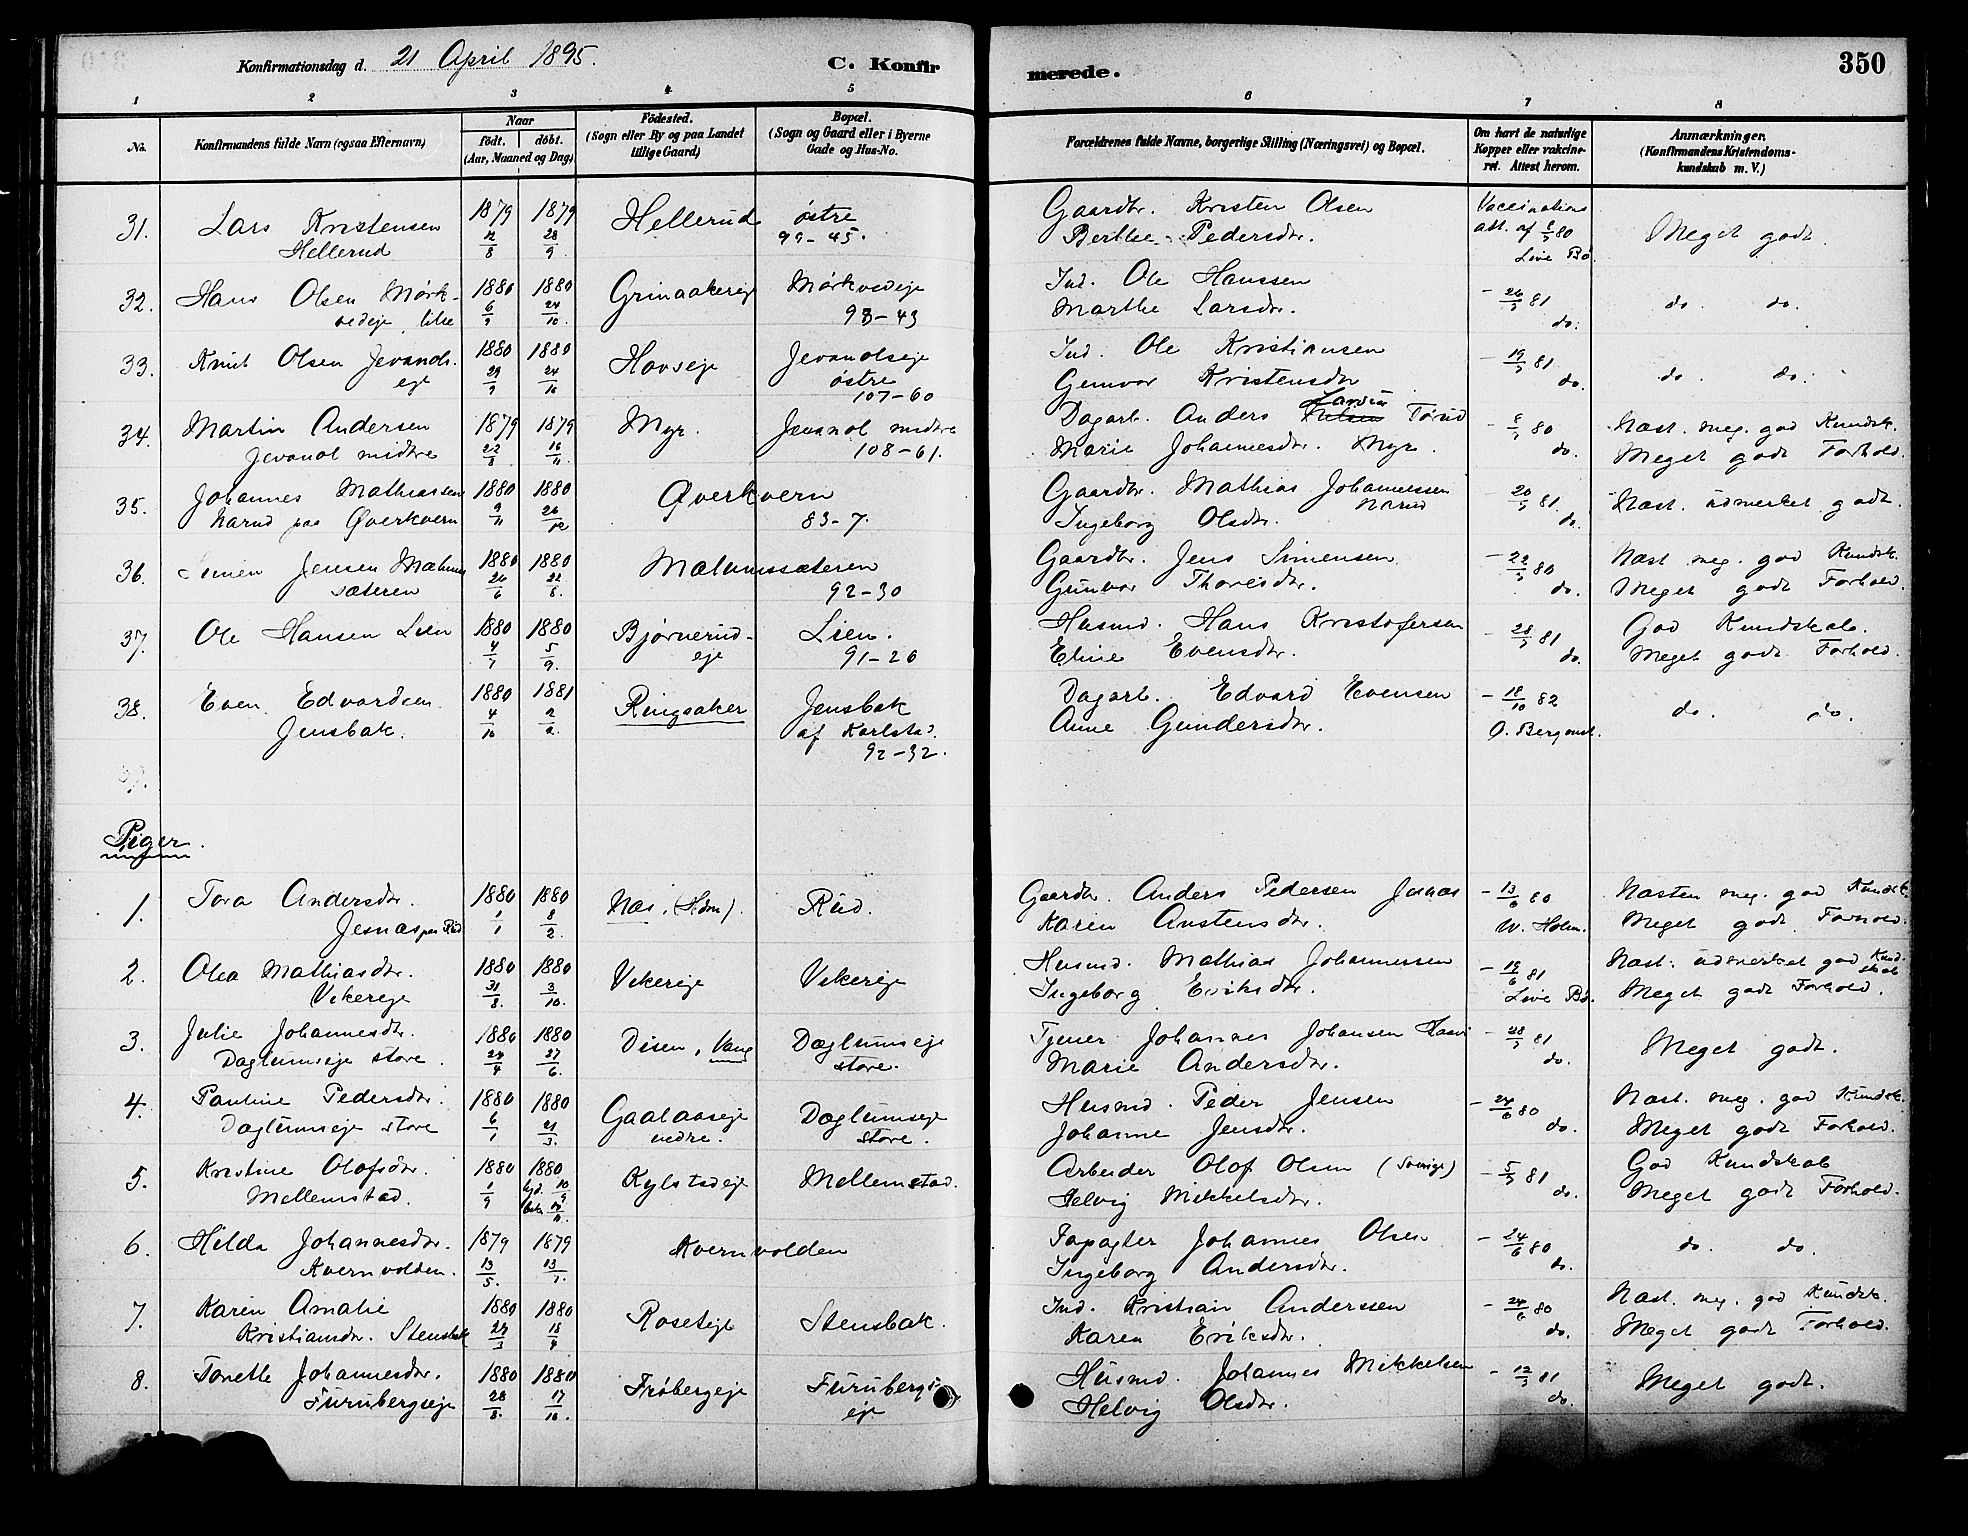 Konfirmationsdag d. 21 April 1895.
C. Konfirmerede.
350
1 2 3 4 5 6 7 8
No.
Konfirmandens fulde Navn (ogsaa Efternavn)
Naar
født. døbt.
(Aar, Maaned og Dag)
Fødested.
(Sogn eller By og paa Landet
tillige Gaard)
Bopæl.
(Sogn og Gaard eller i Byerne
Gade og Hus-No.
Forældrenes fulde Navne, borgerlige Stilling (Næringsvei) og Bopæl.
Om havt de naturlige
Kopper eller vakcine-
ret. Attest herom.
Anmærkninger.
(Konfirmandens Kristendoms-
kundskab m. V.)
31. Lars Kristensen 1879 1879 Hellerud østre Gaardbr. Kristen Olsen Vaccinations
Hellerud 12/8 28/9 99-45. Berthe Pedersdr. att. af 80 Meget godt.
Live Bø.
32. Hans Olsen Mørk- 1880 1880 Grinaakereje Mørkvedeje Ind. Ole Hanssen
vedeje, lille 6/9 24/10. 93-43 Marthe Larsdr. - 26/5 81 do. do. do.
33. Knut Olsen Jevanols- 1880 1880 Hovseje Jevanolseje Ind. Ole Kristiansen - 19/5 81
eje 29/9 24/10 østre Gunvor Kristensdr do. do. do.
107-60
34. Martin Andersen 1879 1879 Myr. Jevanol midtre Dagarb. Anders Larsen Tørud 80 Næst. meg. god Kundsk.
Jevanol midtre 22/8 16/11. 108-61. Marie Johannesdr. Myr. do. Meget godt Forhold.
35. Johannes Mathiassen 1880 1880 Øverkvern Gaardbr. Mathias Johannessen - 20/5 81. Næst. udmerket godt.
Narud paa Øverkvern 9/11 26/12 83-7. Narud
Ingeborg Olsdr. do.
36. Simen Jensen Mælums 1880 1880 Mælumssæteren Gaardbr. Jens Simensen - 22/5 80 Næst meg. god Kundsk.
sæteren 26/6 22/8. 92-30 Gunvor Thoresdr. do. Meget godt Forhold.
37. Ole Hansen Lien 1880 1880 Bjørnerud- Lien. Husmd. Hans Kristofersen - 28/5 81 God Kundskab.
4/7 5/9. eje 91-26 Eline Evensdr. do. Meget godt Forhold.
38. Even Edvardsen 1880 1881 Ringsaker Jensbak Dagarb. Edvard Evensen - 18/10 82 do. do.
Jensbak. 4/10 2/2. af Karlstad. Anne Gundersdr. O. Bergans.
92-32.
Piger.
1. Tora Andersdr. 1880 1880 Næs, (Hdm). Rud. Gaardbr. Anders Pedersen Jesnæs - 13/6 80 Næsten meg. god Kundsk.
Jesnæs paa Rud 1/1 8/2. Karen Austensdr. W. Holm. Meget godt Forhold.
2. Olea Mathiasdr. 1880 1880 Vikereje Vikereje Husmd. Mathias Johannessen - 19/6 81 Næst. udmerket god Kund-
skab
Vikereje 31/8. 3/10. Ingeborg Eriksdr. Live Bø. Meget godt Forhold.
3. Julie Johannesdr. 1880 1880 Disen, Vang Daglumseje Tjener Johannes Johansen - 28/5 81 Meget godt.
Daglumseje store. 24/4 27/6. store. Marie Andersdr. do.
4. Pauline Pedersdr. 1880 1880 Gaalaaseje Daglumseje Husmd. Peder Jensen - 24/6 80 Næst. meg. god Kundsk.
Daglumseje store 6/1 21/3. nedre. store. Johanne Jensdr. do. Meget godt Forhold.
5. Kristine Olofsdr. 1880 1880 Kylstadeje Mellemstad. Arbeider Olof Olsen (Sverige) - 5/5 81 God Kundskab
Mellemstad. 1/9 10/9 Helvig Mikkelsdr. do. Meget godt Forhold.
6. Hilda Johannesdr. 1879 1879 Kvernvolden Johannes Olsen - 24/6 80 do. do.
Kvernvolden. 13/5. Ingeborg Andersdr. do.
7. Karen Amalie 1880 1880 Roseteje Stensbak. Ind. Kristian Anderssen - 24/6 80 Næst. meg. god Kundsk.
Kristiansdr. Stensbak 27/3 18/4 Karen Eriksdr. do. Meget godt Forhold.
8. Torette Johannesdr. 1880 1880 Frøbergeje Furubergs- Husmd. Johannes Mikkelsen - 12/5 81 Meget godt.
Furubergseje 28/8. 17/10. eje Helvig Olsdr. do.